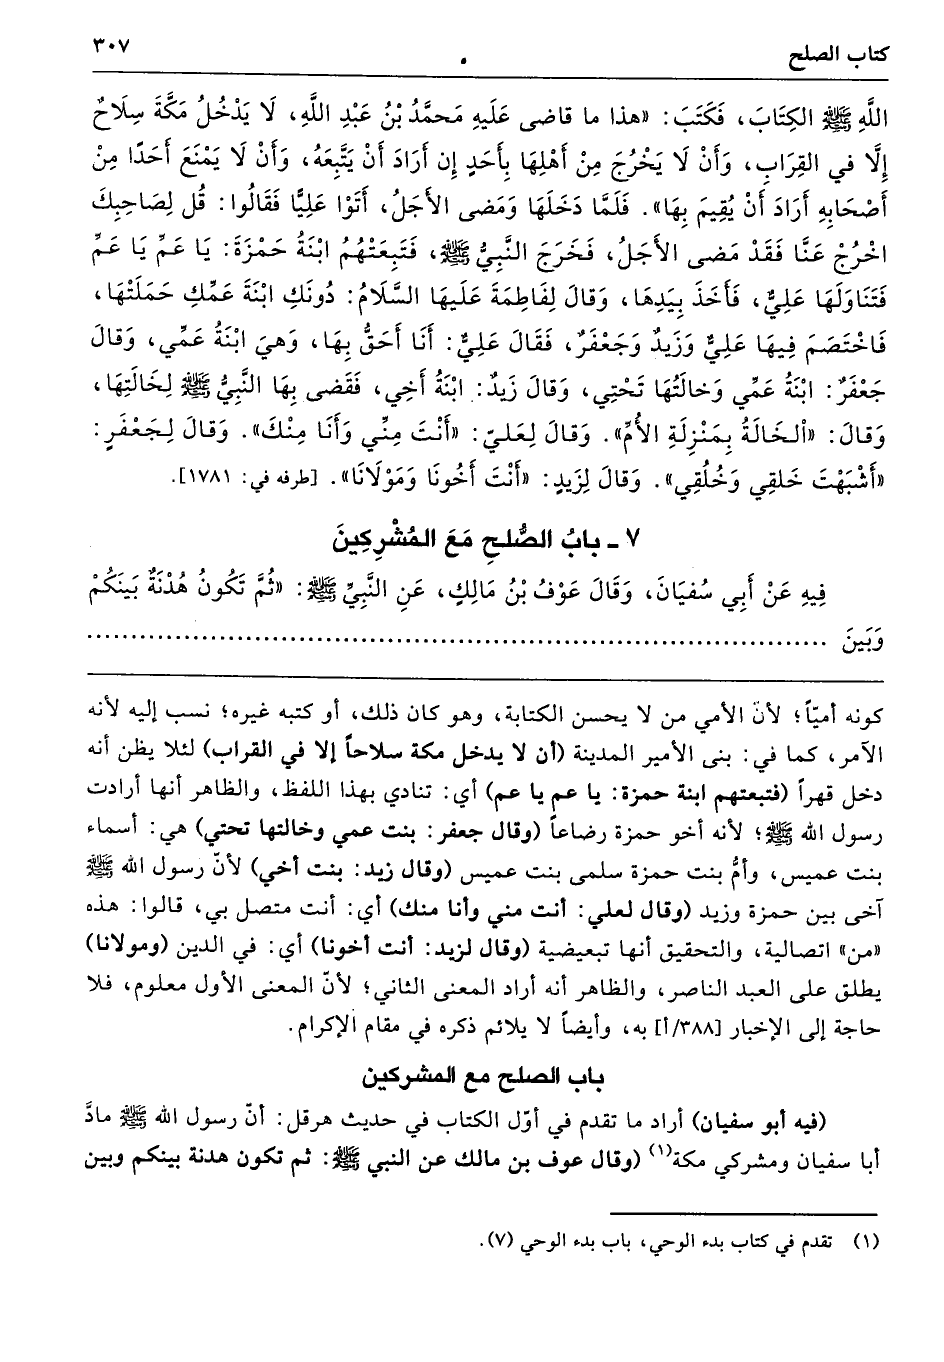 كتاب الصلح
٣٠٧
اللَّهِ ﷺ الكِتَابَ، فَكَتَبَ: «هذا ما قاضى عَلَيهِ مَحمَّدُ بْنُ عَبْدِ اللَّهِ، لَا يَدْخُلُ مَكَّةَ سِلَاحٌ
إِلَّا في القِرَابِ، وَأَنْ لَا يَخْرُجَ مِنْ أَهْلِهَا بِأَحَدٍ إِن أَرَادَ أَنْ يَتَّبِعَهُ، وَأَنْ لَا يَمْنَعَ أَحَدًا مِنْ
أَصْحَابِهِ أَرَادَ أَنْ يُقِيمَ بِهَا». فَلَمَّا دَخَلَهَا وَمَضى الأَجَلُ، أَتَوْا عَلِيًّا فَقَالُوا: قُل لِصَاحِبِكَ
اخْرُجْ عَنَّا فَقَدْ مَضى الأَجَلُ، فَخَرَجَ النَّبِيُّ ﷺ، فَتَبِعَتْهُمُ ابْنَةُ حَمْزَةَ: يَا عَمِّ يَا عَمِّ
فَتَنَاوَلَهَا عَلِيٌّ، فَأَخَذَ بِيَدِهَا، وَقالَ لِفَاطِمَةَ عَلَيهَا السَّلَامُ: دُونَكِ ابْنَةَ عَمِّكِ حَمَلَتْهَا،
فَاخْتَصَمَ فِيهَا عَلِيٌّ وَزَيدٌ وَجَعْفَرٌ، فَقَالَ عَلِيٌّ: أَنَا أَحَقُّ بِهَا، وَهيَ ابْنَةُ عَمِّي، وَقالَ
جَعْفَرٌ: ابْنَةُ عَمِّي وَخالَتُهَا تَحْتِي، وَقالَ زَيدٌ: ابْنَةُ أَخِي، فَقَضى بِهَا النَّبِيُّ ﷺ لِخَالَتِهَا،
وَقَالَ: «اْلخَالَةُ بِمَنْزِلَةِ الأُمِّ». وَقالَ لِعَليّ: «أَنْتَ مِنِّي وَأَنَا مِنْكَ». وَقالَ لِجَعْفَرٍ:
«أَشْبَهْتَ خَلقِي وَخُلُقِي». وَقالَ لِزَيدٍ: «أَنْتَ أَخُونَا وَمَوْلَانَا». [طرفه في: ١٧٨١].
٧ ـ بابُ الصُّلحِ مَعَ المُشْرِكِينَ
فِيهِ عَنْ أَبِي سُفيَانَ، وَقَالَ عَوْفُ بْنُ مَالِكٍ، عَنِ النَّبِيِّ ﷺ: «ثُمَّ تَكُونُ هُدْنَةٌ بَينَكُمْ
وَبَينَ ................................................................................
كونه أميّاً؛ لأنّ الأمي من لا يحسن الكتابة، وهو كان ذلك، أو كتبه غيره؛ نسب إليه لأنه
الآمر، كما في: بنى الأمير المدينة (أن لا يدخل مكة سلاحاً إلا في القراب) لئلا يظن أنه
دخل قهراً (فتبعتهم ابنة حمزة: يا عم يا عم) أي: تنادي بهذا اللفظ، والظاهر أنها أرادت
رسول الله ﷺ؛ لأنه أخو حمزة رضاعاً (وقال جعفر: بنت عمي وخالتها تحتي) هي: أسماء
بنت عميس، وأمُّ بنت حمزة سلمى بنت عميس (وقال زيد: بنت أخي) لأنّ رسول الله ﷺ
آخى بين حمزة وزيد (وقال لعلي: أنت مني وأنا منك) أي: أنت متصل بي، قالوا: هذه
«من» اتصالية، والتحقيق أنها تبعيضية (وقال لزيد: أنت أخونا) أي: في الدين (ومولانا)
يطلق على العبد الناصر، والظاهر أنه أراد المعنى الثاني؛ لأنّ المعنى الأول معلوم، فلا
حاجة إلى الإخبار [٣٨٨/أ] به، وأيضاً لا يلائم ذكره في مقام الإكرام.
باب الصلح مع المشركين
(فيه أبو سفيان) أراد ما تقدم في أوّل الكتاب في حديث هرقل: أنّ رسول الله ﷺ مادَّ
أبا سفيان ومشركي مكة(١) (وقال عوف بن مالك عن النبي ﷺ: ثم تكون هدنة بينكم وبين
(١) تقدم في كتاب بدء الوحي، باب بدء الوحي (٧).